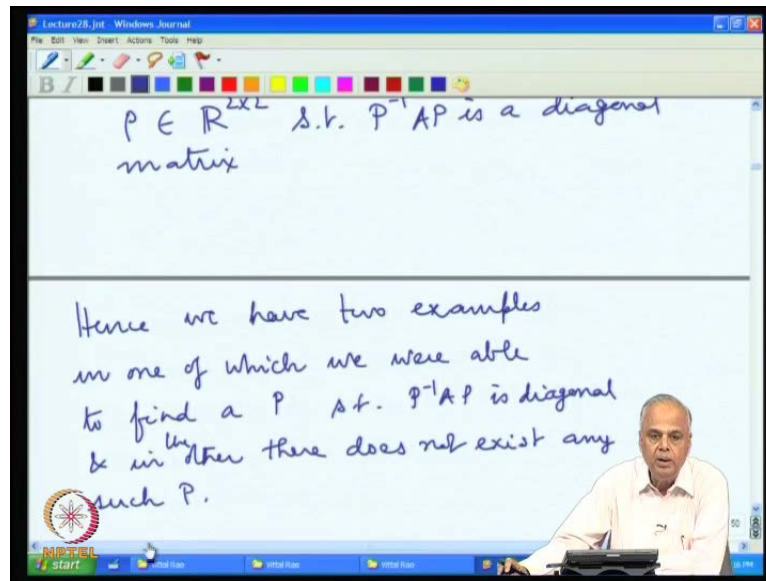 Lecture28.jnt - Windows Journal
File Edit View Insert Actions Tools Help
B I
P ∈ ℝ^{2×2} s.t. P^{-1}AP is a diagonal
matrix
Hence we have two examples
in one of which we were able
to find a P s.t. P^{-1}AP is diagonal
& in the other there does not exist any
such P.
50
NPTEL
start Vittal Rao Vittal Rao Vittal Rao